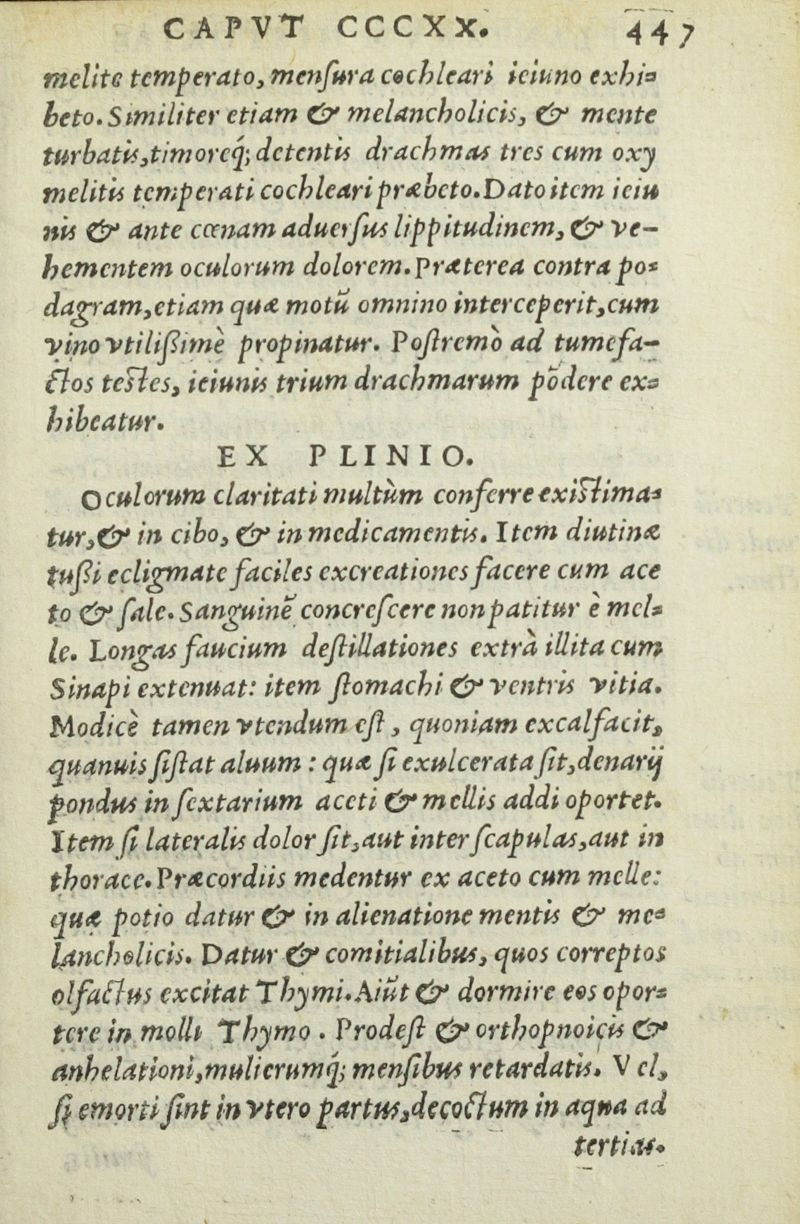 CAPVT CCCXX. 447
melite temperato, menſura cochleari ieiuno exhi-
beto. Similiter etiam & melancholicis, & mente
turbatis, timoreq́; detentis drachmas tres cum oxy
melitis temperati cochleari præbeto. Dato item ieiu
nis & ante cœnam aduerſus lippitudinem, & ve-
hementem oculorum dolorem. Præterea contra po-
dagram, etiam quæ motū omnino interceperit, cum
vino vtilißimè propinatur. Poſtremò ad tumefa-
ctos teſtes, ieiunis trium drachmarum pōdere ex-
hibeatur.
EX PLINIO.
Oculorum claritati multùm conferre exiſtima-
tur, & in cibo, & in medicamentis. Item diutinæ
tußi ecligmate faciles excreationes facere cum ace
to & ſale. Sanguinē concreſcere non patitur è mel-
le. Longas faucium deſtillationes extrà illita cum
Sinapi extenuat: item ſtomachi & ventris vitia.
Modicè tamen vtendum eſt, quoniam excalfacit,
quanuis ſiſtat aluum: quæ ſi exulcerata ſit, denarij
pondus in ſextarium aceti & mellis addi oportet.
Item ſi lateralis dolor ſit, aut inter ſcapulas, aut in
thorace. Præcordiis medentur ex aceto cum melle:
quæ potio datur & in alienatione mentis & me-
lancholicis. Datur & comitialibus, quos correptos
olfactus excitat Thymi. Aiūt & dormire eos opor-
tere in molli Thymo. Prodeſt & orthopnoicis &
anhelationi, mulierumq́; menſibus retardatis. Vel,
ſi emorti ſint in vtero partus, decoctum in aqua ad
tertias.